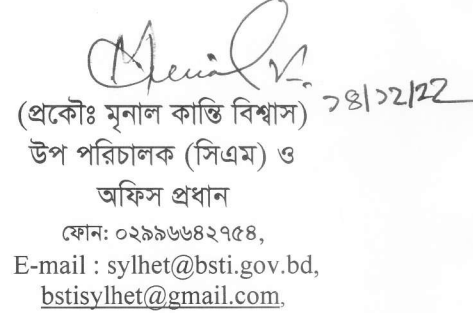 ১৪/১২/২২
(প্রকৌঃ মৃনাল কান্তি বিশ্বাস)
উপ পরিচালক (সিএম) ও
অফিস প্রধান
ফোন: ০২৯৯৬৬৪২৭৫৪,
E-mail : sylhet@bsti.gov.bd,
bstisylhet@gmail.com,